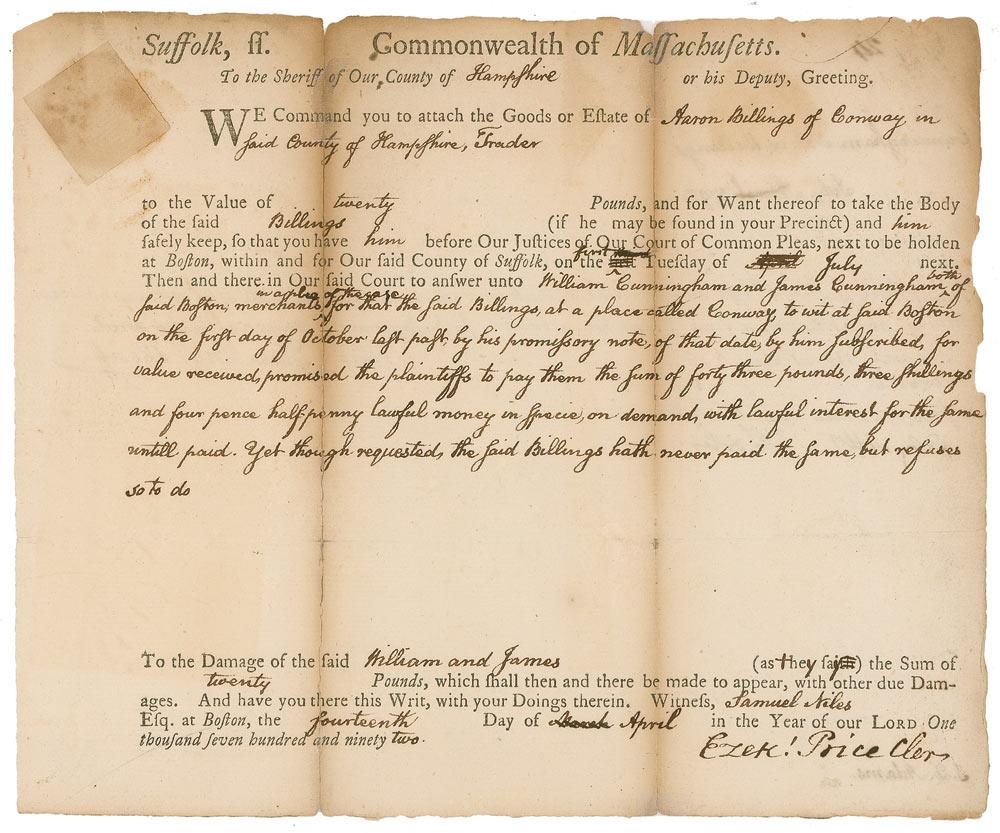 Suffolk, ſſ. Commonwealth of Maſſachuſetts.
To the Sheriff of Our County of Hampſhire or his Deputy, Greeting.
WE Command you to attach the Goods or Eſtate of Aaron Billings of Conway, in
ſaid County of Hampſhire, Trader
to the Value of twenty Pounds, and for Want thereof to take the Body
of the ſaid Billings (if he may be found in your Precinct) and him
ſafely keep, ſo that you have him before Our Juſtices of Our Court of Common Pleas, next to be holden
first
at Boſton, within and for Our ſaid County of Suffolk, on the Tueſday of April July next.
both
Then and there in Our ſaid Court to anſwer unto William Cunningham and James Cunningham, of
in a plea of the case
ſaid Boſton, merchants, for that the ſaid Billings, at a place called Conway, to wit at ſaid Boſton
on the firſt day of October laſt paſt, by his promiſſory note, of that date, by him ſubſcribed, for
value received, promised the plaintiffs to pay them the ſum of forty three pounds, three ſhillings
and four pence half penny lawful money in ſpecie, on demand, with lawful interest for the ſame
untill paid. Yet though requested, the ſaid Billings hath never paid the ſame, but refuses
so to do
To the Damage of the ſaid William and James (as they ſay) the Sum of
twenty Pounds, which ſhall then and there be made to appear, with other due Dam-
ages. And have you there this Writ, with your Doings therein. Witneſs, Samuel Niles
Eſq. at Boſton, the fourteenth Day of March April in the Year of our LORD One
thouſand ſeven hundred and ninety two.
Ezek! Price Cler,